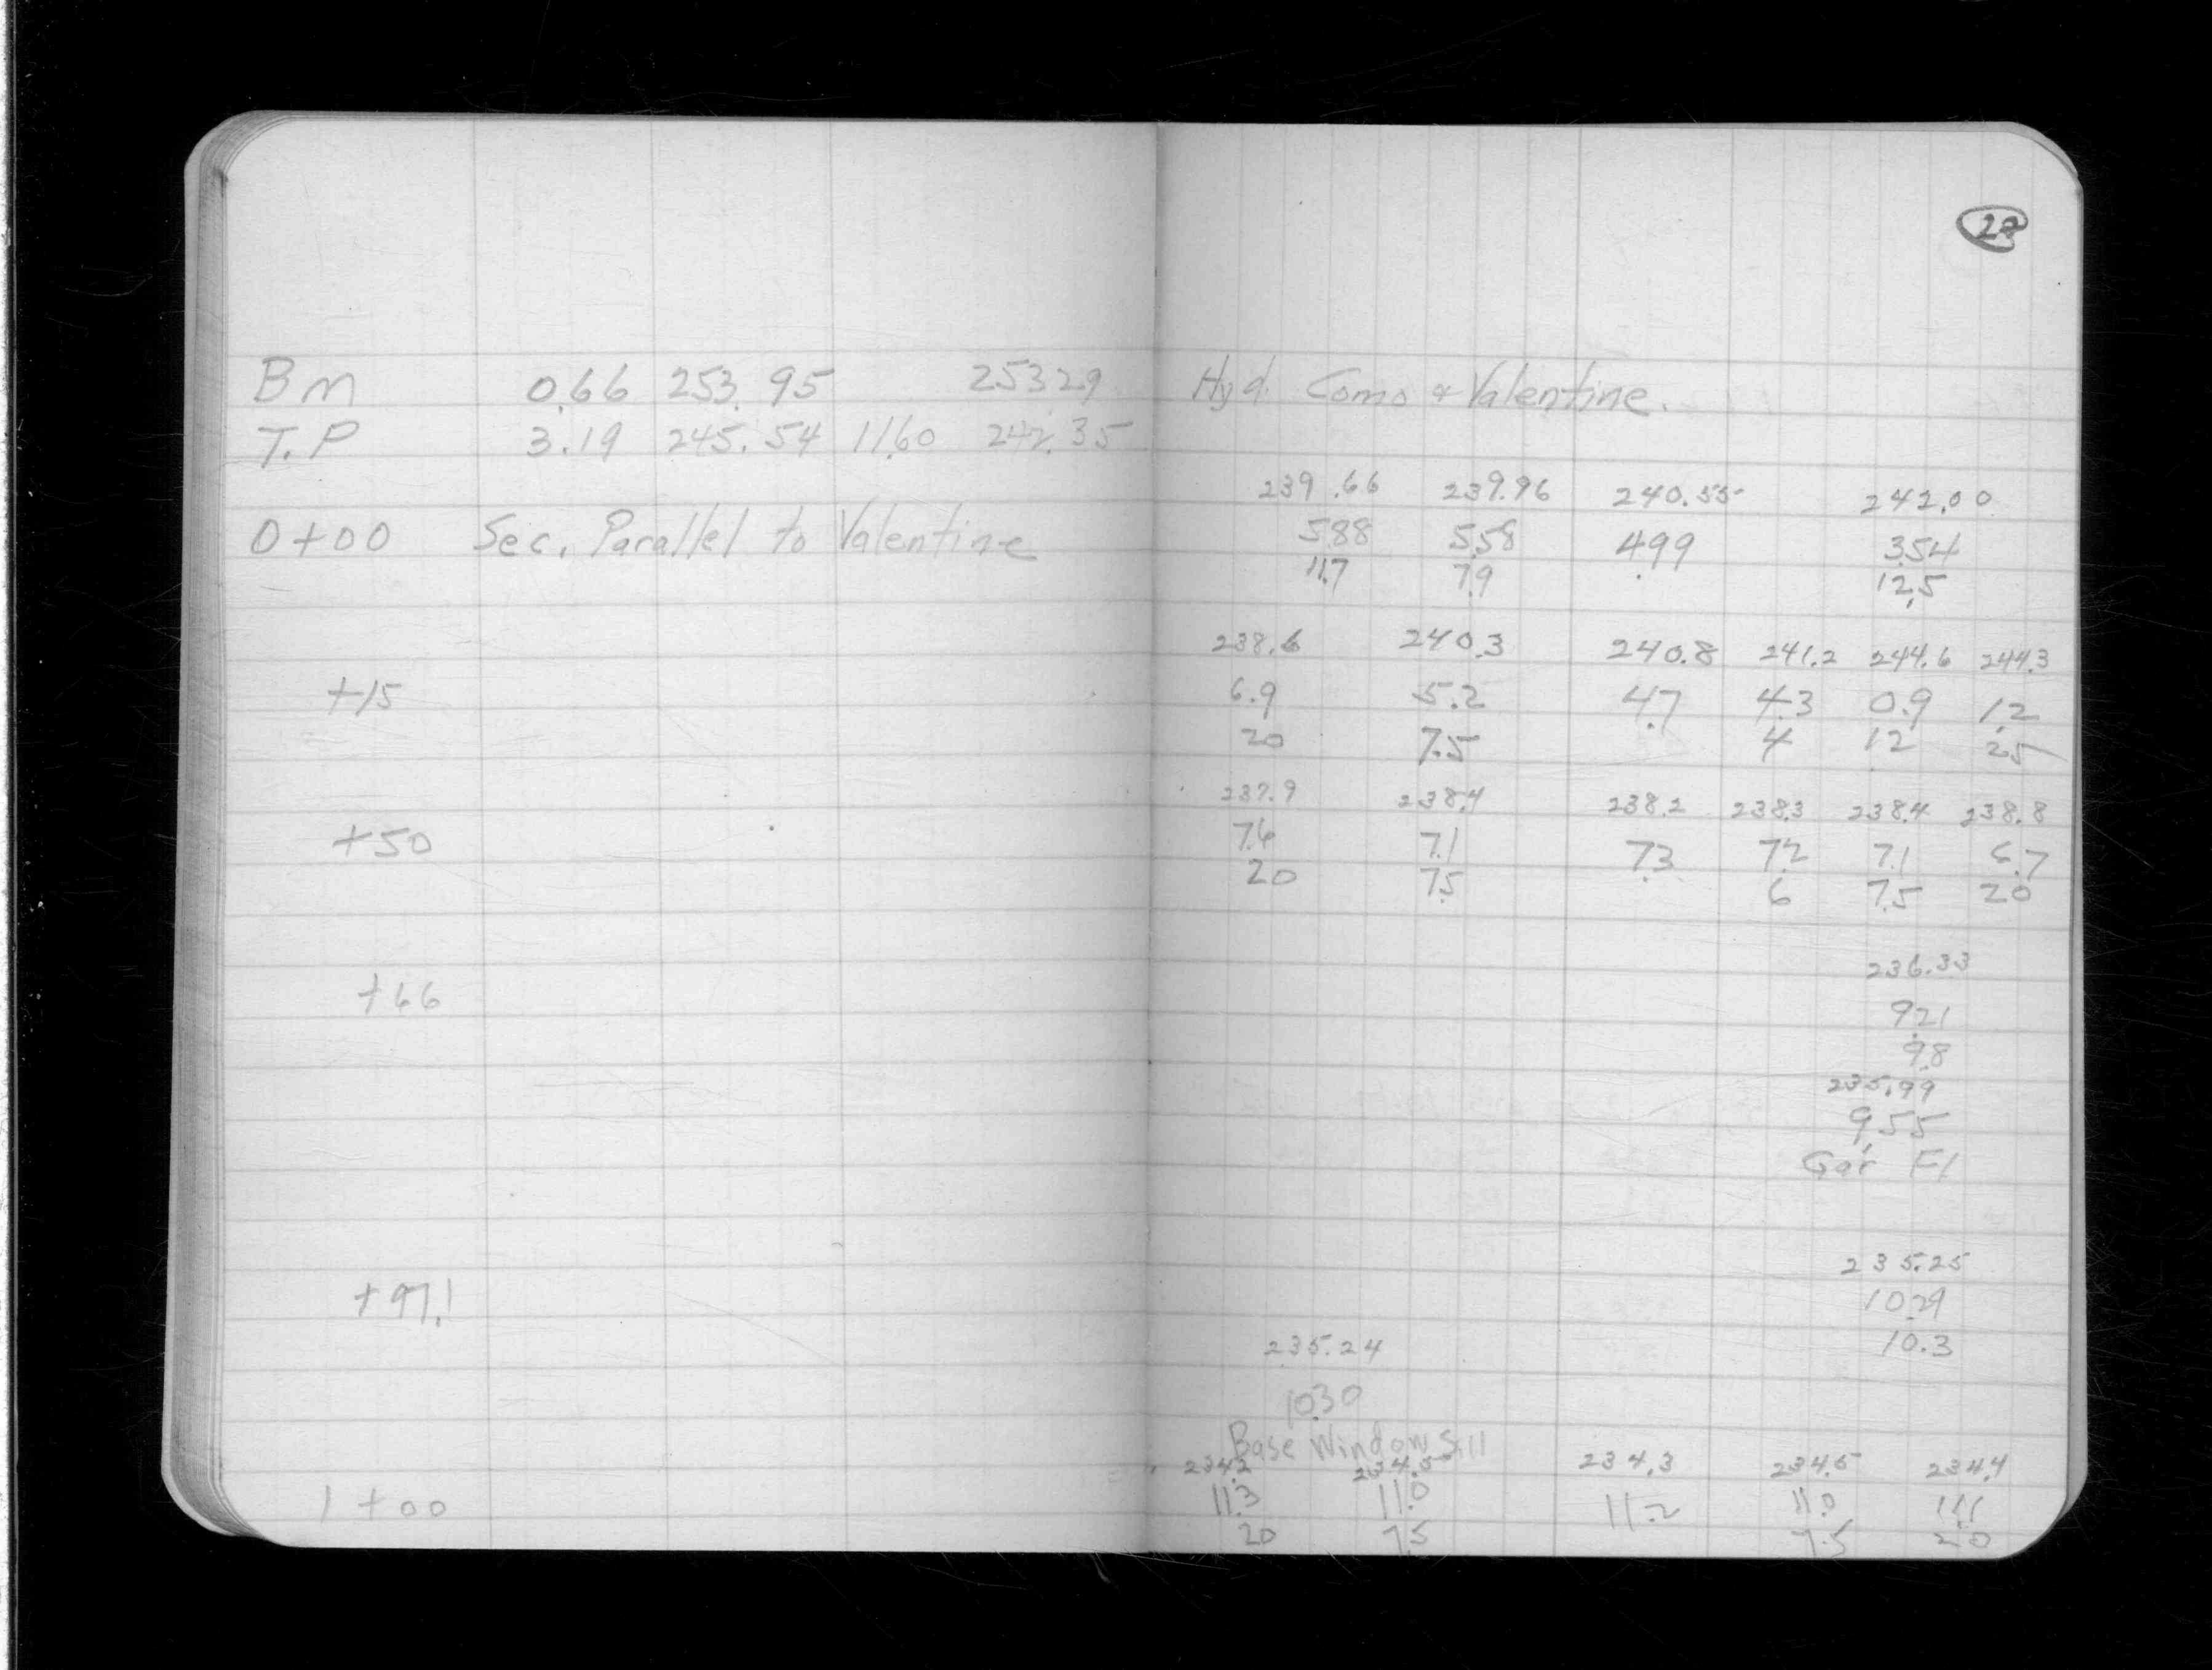 28
BM 0.66 253.95 253.29 Hyd. Como & Valentine.
T.P 3.19 245.54 11.60 242.35
239.66 239.96 240.55 242.00
0+00 Sec. Parallel to Valentine 5.88 5.58 4.99 3.54
11.7 7.9 12.5
238.6 240.3 240.8 241.2 244.6 244.3
+15 6.9 5.2 4.7 4.3 0.9 1.2
20 7.5 4 12 25
237.9 238.4 238.2 238.3 238.4 238.8
+50 7.6 7.1 7.3 7.2 7.1 6.7
20 7.5 6 7.5 20
236.33
+66 9.21
9.8
235.99
9.55
Gar Fl
235.25
+97.1 10.29
235.24 10.3
10.30
Base Window Sill
234.2 234.5 234.3 234.5 234.4
1+00 11.3 11.0 11.2 11.0 11.1
20 7.5 7.5 20